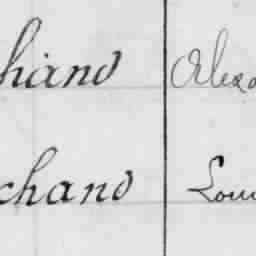 hand Alexa
chand Loui